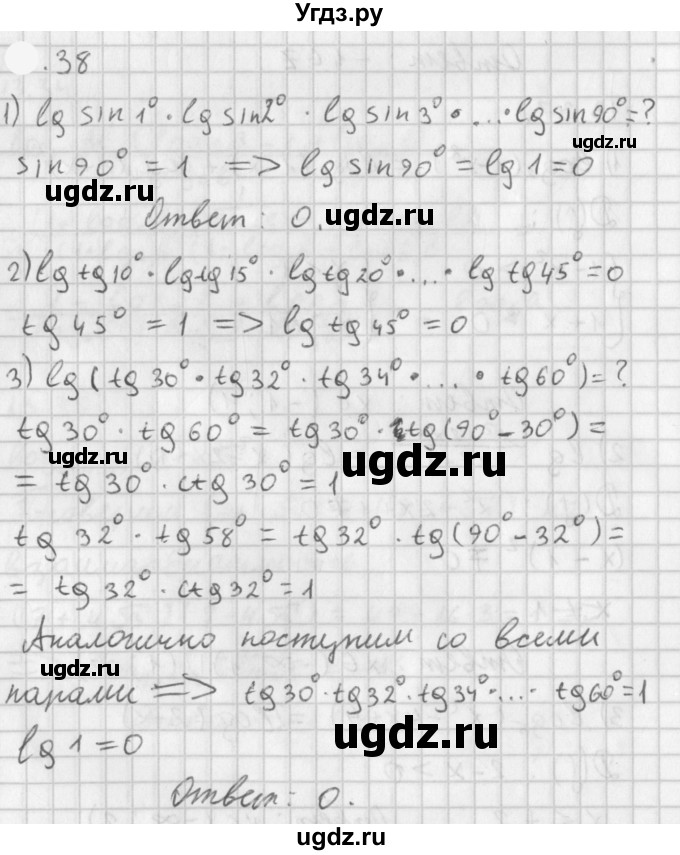 Угдз.ру
.38
1) lg sin 1° · lg sin 2° · lg sin 3° · ... · lg sin 90° = ?
ugdz.ru
sin 90° = 1 => lg sin 90° = lg 1 = 0
ugdz.ru
Ответ: 0.
ugdz.ru
2) lg tg 10° · lg tg 15° · lg tg 20° · ... · lg tg 45° = 0
tg 45° = 1 => lg tg 45° = 0
ugdz.ru
3) lg (tg 30° · tg 32° · tg 34° · ... · tg 60°) = ?
tg 30° · tg 60° = tg 30° · tg (90° - 30°) =
ugdz.ru
ugdz.ru
= tg 30° · ctg 30° = 1
tg 32° · tg 58° = tg 32° · tg (90° - 32°) =
ugdz.ru
= tg 32° · ctg 32° = 1
Аналогично поступим со всеми
ugdz.ru
парами => tg 30° · tg 32° · tg 34° · ... · tg 60° = 1
ugdz.ru
lg 1 = 0
Ответ: 0.
ugdz.ru